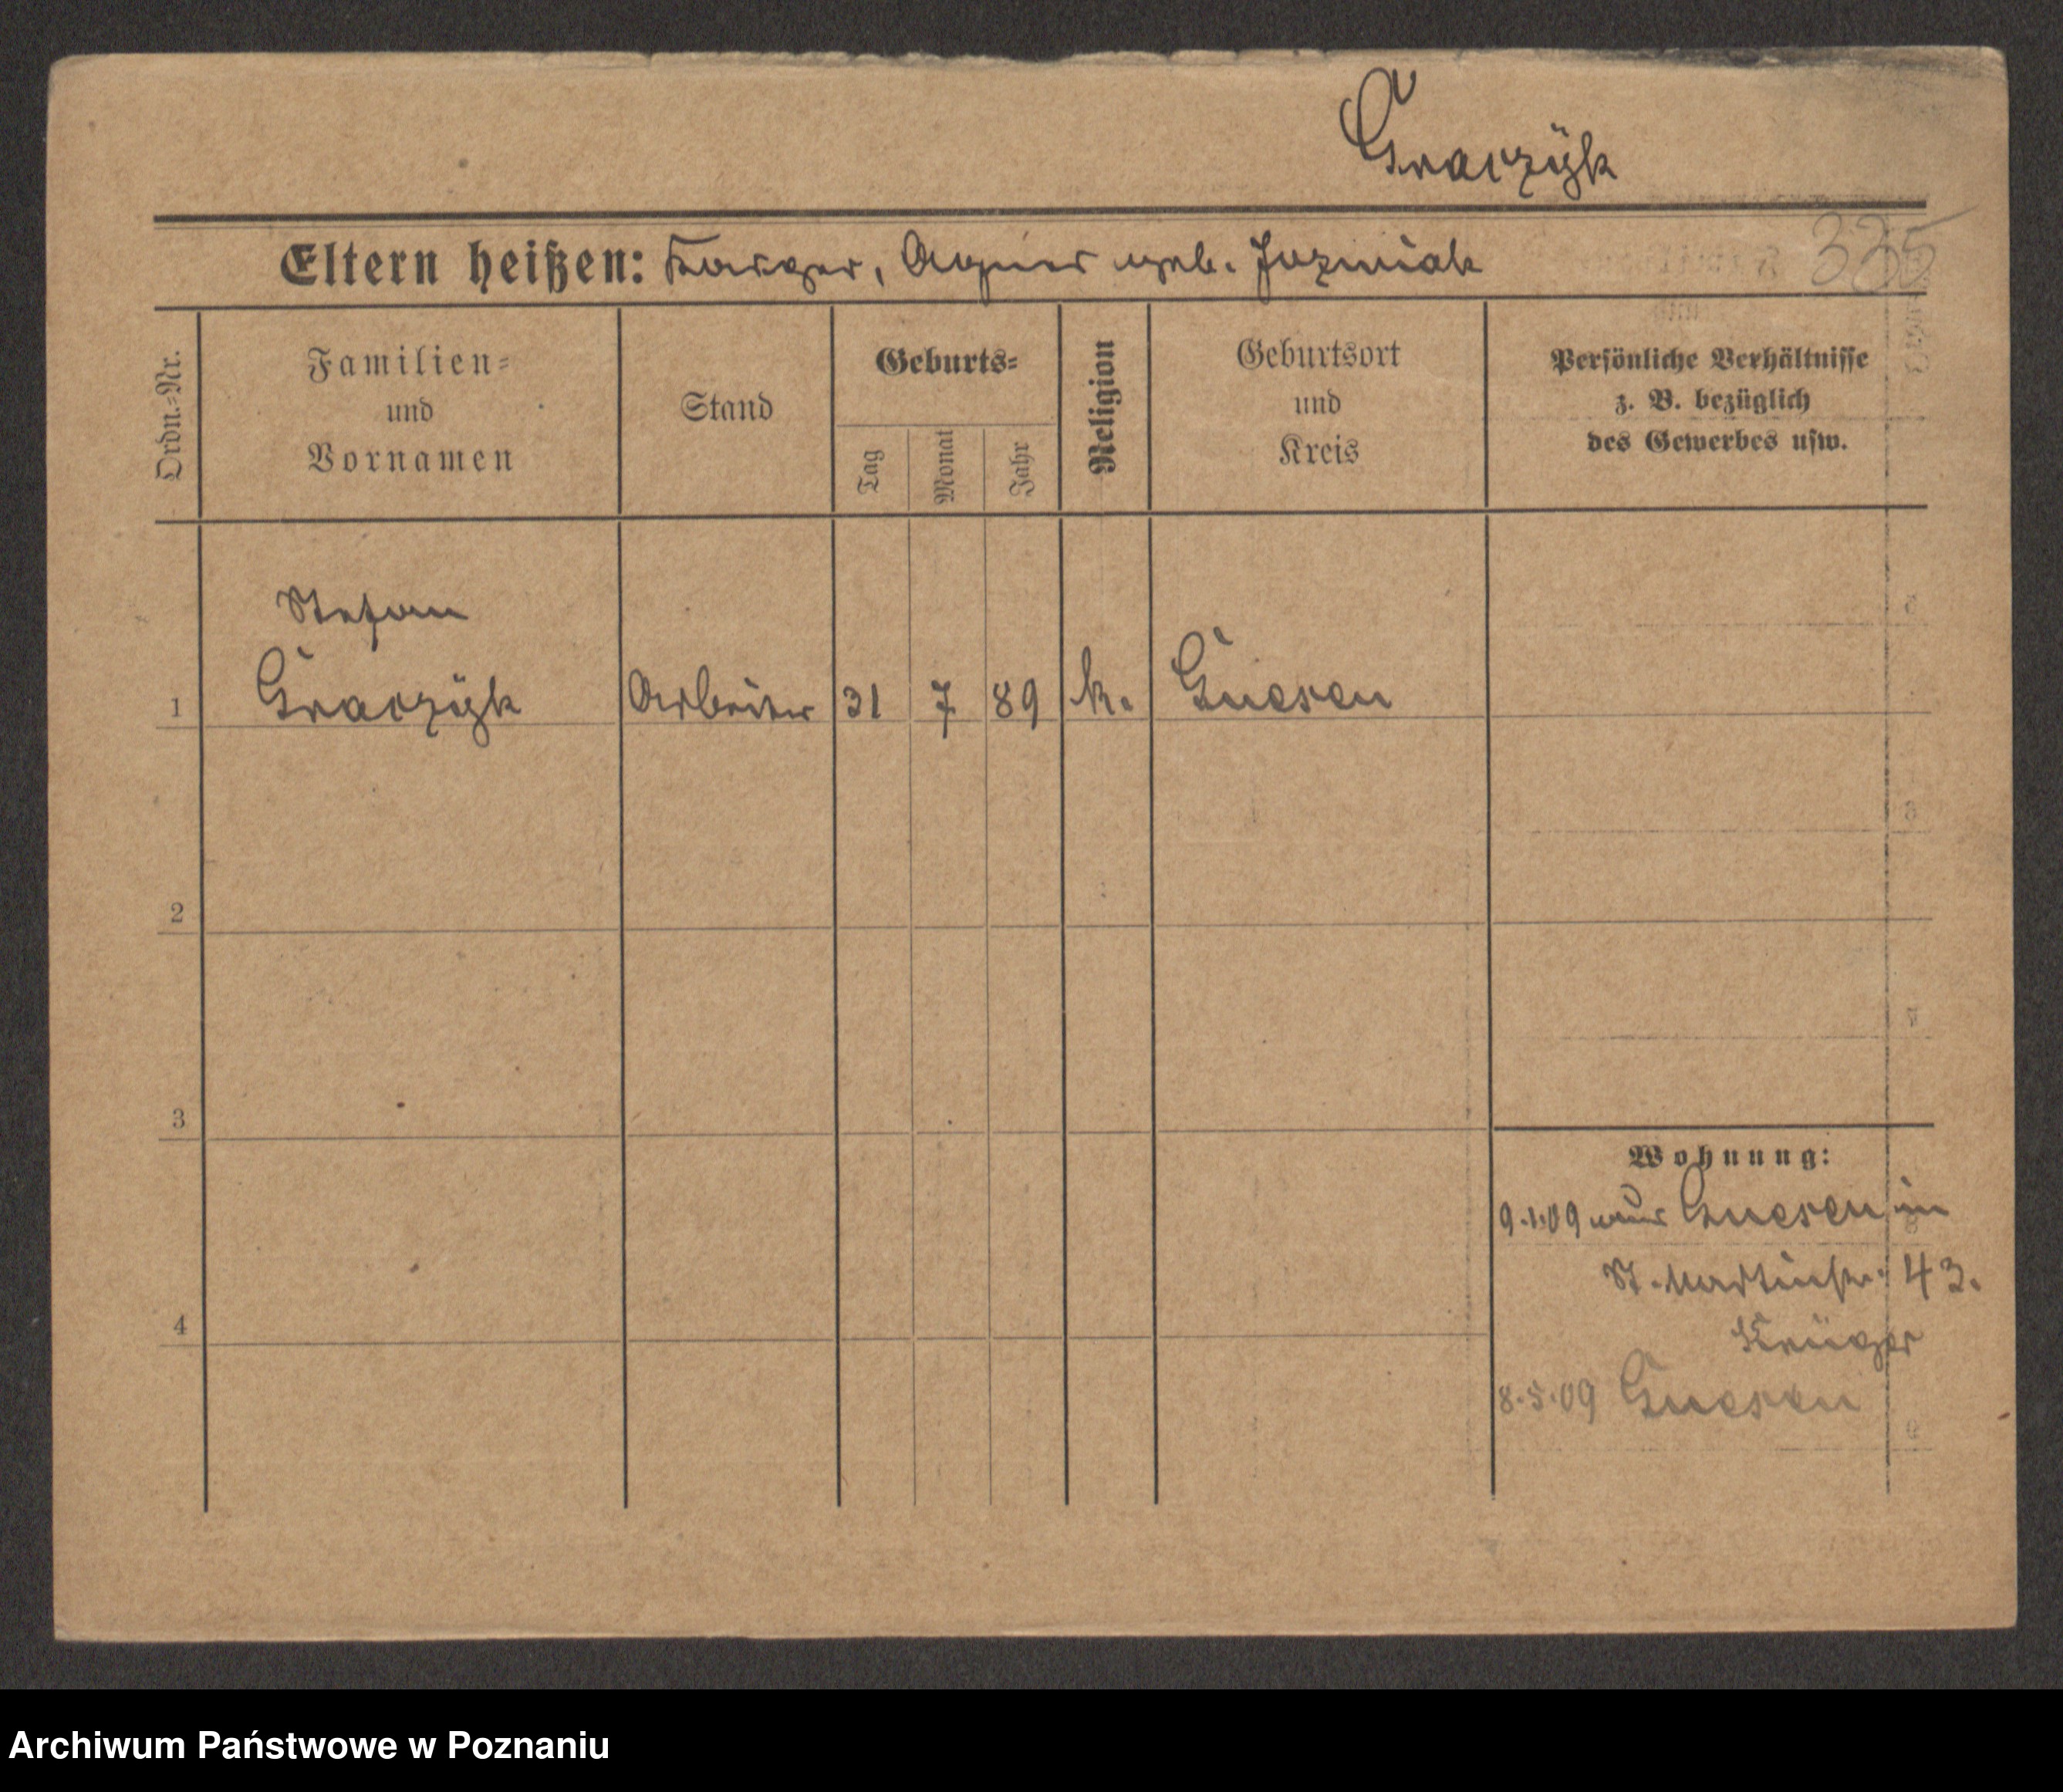 Graczÿk
335
Eltern heißen: geb. Jozwiak
Ordn.=Nr.
Familien=
und
Vornamen
Stand
Geburts=
Tag
Monat
Jahr
Religion
Geburtsort
und
Kreis
Persönliche Verhältnisse
z. B. bezüglich
des Gewerbes usw.
Stefan
1 Graczÿk Arbeiter 31 7 89 k. Gnesen
2
3
4
Wohnung:
9.1.09 aus Gnesen in
St. Martinstr. 43.
Krüger
8.5.09 Gnesen
Archiwum Państwowe w Poznaniu